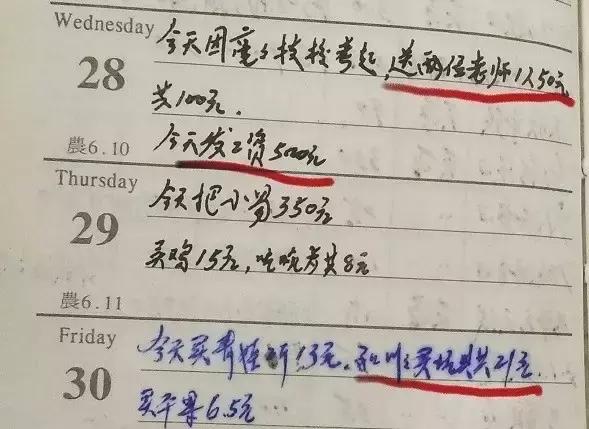 Wednesday
28
今天因亮亮技校考起,送两位老师1人50元,
共100元.
農6.10
今天发工资500元
Thursday
29
今天把小 350元
买鸡15元,吃 共8元
農6.11
Friday
30
今天买青 13元. 买玩具共21元.
买干果6.5元